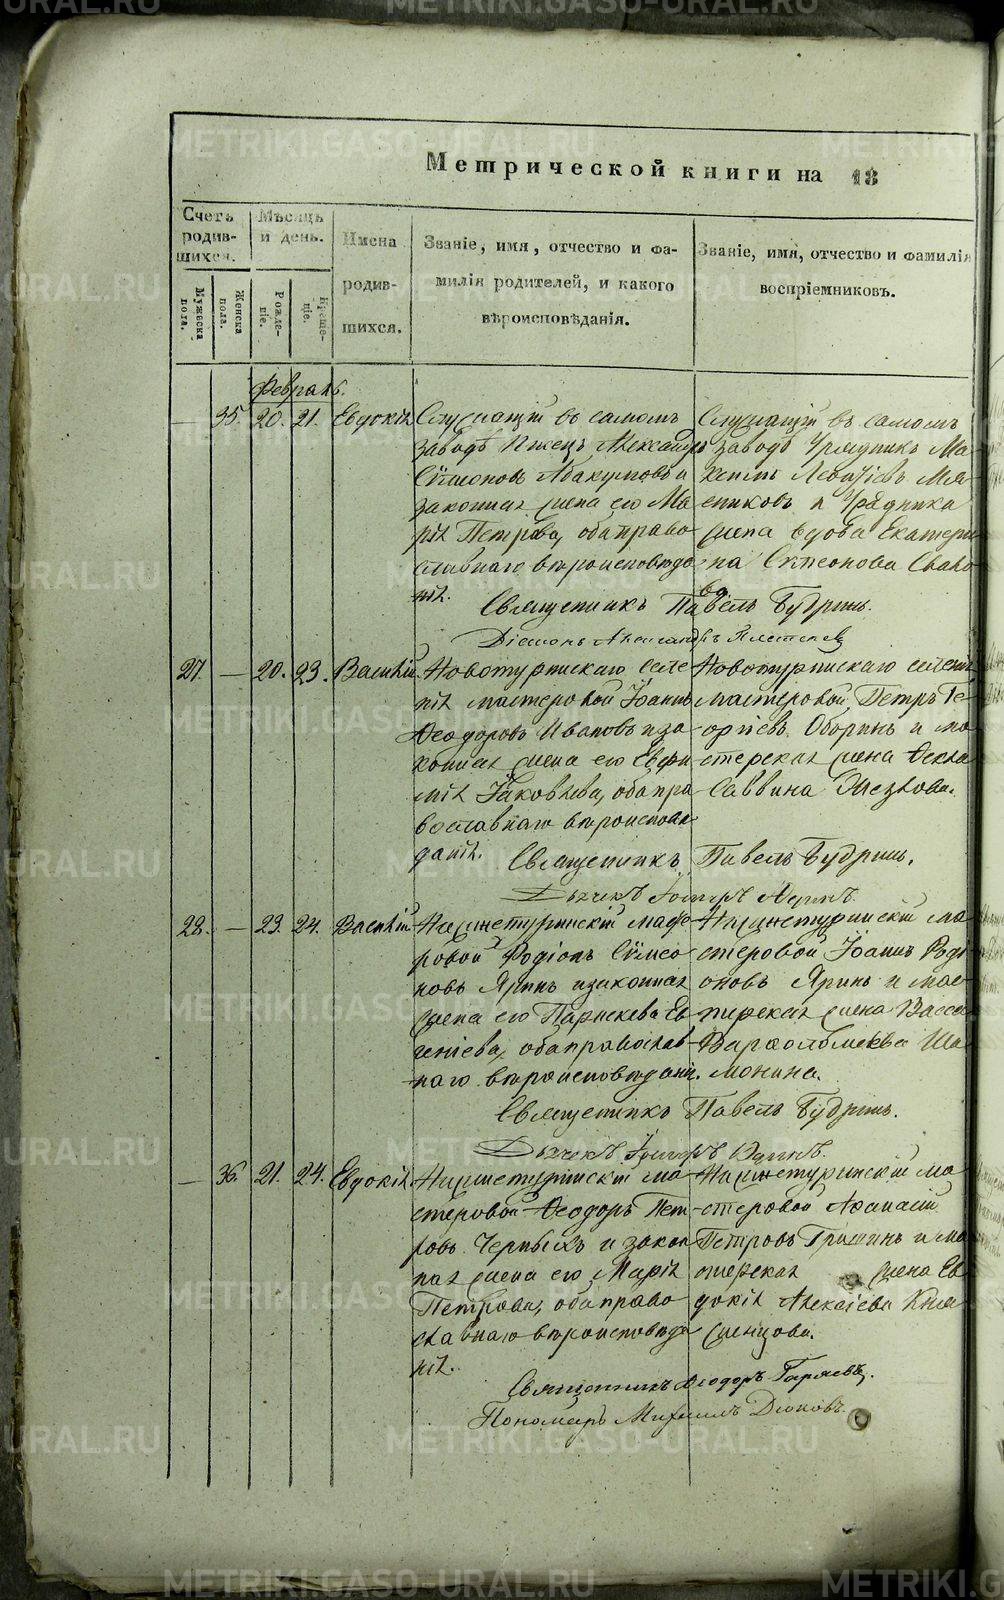 Метрической книги на 18
Счетъ родив-шихся.
Мѣсяцъ и день.
Имена родив-шихся.
Званіе, имя, отчество и фа-
милія родителей, и какого
вѣроисповѣданія.
Званіе, имя, отчество и фамилія
воспріемниковъ.
Мужеска пола.
Женска пола.
Рожде-ніе.
Креще-ніе.
Февраль.
— 35. 20. 21. Евдокія
Служащій въ самомъ
заводѣ Александръ
Сѵмеоновъ Абакумовъ и
законная жена его Ма-
рія Петрова, оба право-
славнаго вѣроисповѣда-
нія.
Служащій въ самомъ
заводѣ Урядникъ
и Урядника
жена вдова Екатери-
на Сѵмеонова
Священникъ Павелъ Будринъ.
Діаконъ Александръ
27. — 20. 23. Василій
Новотуринскаго селе-
нія мастеровой Іоаннъ
Ѳеодоровъ Ивановъ и за-
конная жена его Евфи-
мія Іаковлева, оба пра-
вославнаго вѣроисповѣ-
данія.
Новотуринскаго селенія
мастеровой Петръ Ге-
оргіевъ Оборинъ и ма-
стерская жена Ѳекла
Саввина
Священникъ Павелъ Будринъ.
Дьячекъ
28. — 23. 24. Василій
Нижнетуринскій масте-
ровой Родіонъ Сѵмео-
новъ Яринъ и законная
жена его Параскева Ев-
геніева, оба православ-
наго вѣроисповѣданія.
Нижнетуринскій ма-
стеровой Іоаннъ Роді-
оновъ Яринъ и мас-
терская жена Васса
Варѳоломеева Ша-
монина.
Священникъ Павелъ Будринъ.
Дьячекъ
— 36. 21. 24. Евдокія
Нижнетуринскій ма-
стеровой Ѳеодоръ Пет-
ровъ Черныхъ и закон-
ная жена его Марія
Петрова, оба право-
славнаго вѣроисповѣда-
нія.
Нижнетуринскій ма-
стеровой Аѳанасій
Петровъ Гришинъ и ма-
стерская жена Ев-
докія Алексіева Кня-
женцова.
Священникъ Ѳеодоръ Гаряевъ.
Пономарь Михаилъ Дюковъ.
METRIKI.GASO-URAL.RU